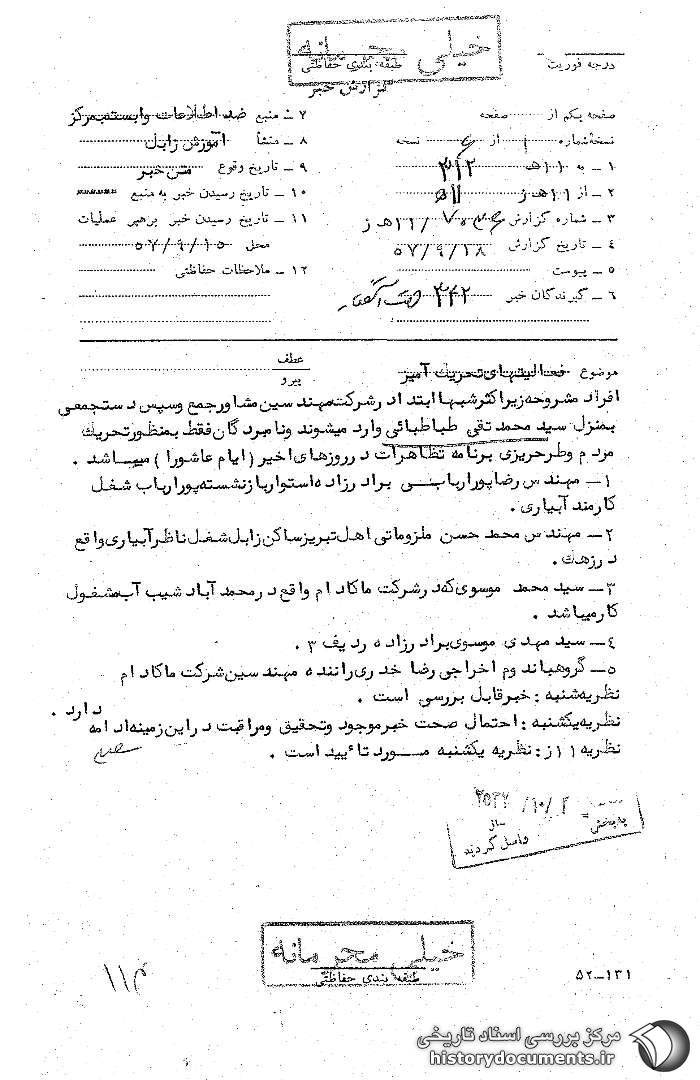 خیلی محرمانه
طبقه بندی حفاظتی
گزارش خبر
درجه فوریت
صفحه یکم از صفحه
نسخه شماره ۱ از نسخه
۱ ـ به ۱۱هـ ۳۱۲
۲ ـ از ۱۱هـ ز
۳ ـ شماره گزارش /۱۱هـ ز
۴ ـ تاریخ گزارش ۵۷/۹/۱۸
۵ ـ پیوست
۶ ـ گیرندگان خبر
۷ ـ منبع ضد اطلاعات وابسته بمرکز
۸ ـ منشأ آموزش زابل
۹ ـ تاریخ وقوع متن خبر
۱۰ ـ تاریخ رسیدن خبر به منبع
۱۱ ـ تاریخ رسیدن خبر برهبر عملیات
محل ۵۷/۹/۱۵
۱۲ ـ ملاحظات حفاظتی
موضوع فعالیتهای تحریک آمیز
عطف
پیرو
افراد مشروحه زیر اکثر شبها ابتدا در شرکت مهندسین مشاور جمع وسپس دستجمعی
بمنزل سید محمد تقی طباطبائی وارد میشوند ونامبردگان فقط بمنظور تحریک
مردم وطرحریزی برنامه تظاهرات در روزهای اخیر ( ایام عاشورا ) میباشد .
۱ـ مهندس رضا پورارباب برادرزاده استوار بازنشسته پورارباب شغل
کارمند آبیاری .
۲ـ مهندس محمد حسن ملزوماتی اهل تبریز ساکن زابل شغل ناظر آبیاری واقع
در زهک .
۳ـ سید محمد موسوی که در شرکت ماکادام واقع در محمدآباد شیب آب مشغول
کار میباشد .
۴ـ سید مهدی موسوی برادرزاده ردیف ۳ .
۵ـ گروهباندوم اخراجی رضا خدری راننده مهندسین شرکت ماکادام
نظریه شنبه : خبر قابل بررسی است .
نظریه یکشنبه : احتمال صحت خبر موجود وتحقیق ومراقبت در این زمینه ادامه دارد .
نظریه ۱۱ز : نظریه یکشنبه مورد تائید است .
۲۵۳۷/۱۰/۲
به بخش
واصل گردید
خیلی محرمانه
طبقه بندی حفاظتی
۵۲ـ۱۳۱
مرکز بررسی اسناد تاریخی
historydocuments.ir